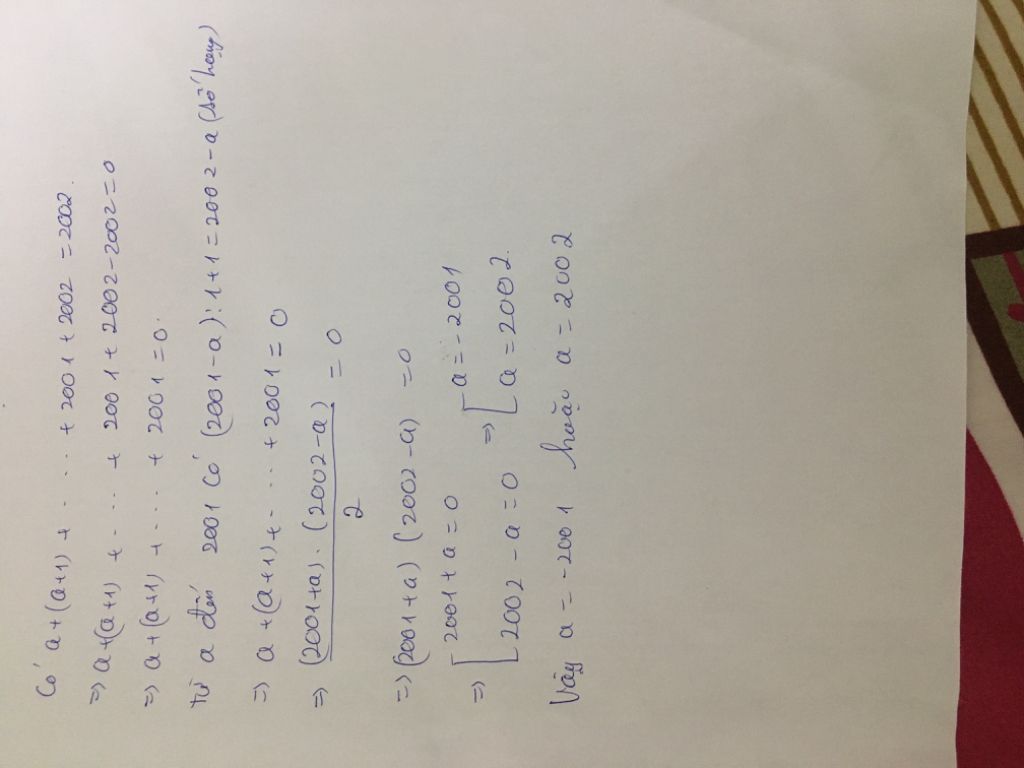 Có a+(a+1) + . . . + 2001 + 2002 = 2002.
=> a+(a+1) + . . . + 2001 + 2002-2002=0
=> a+(a+1) + . . . . + 2001 = 0.
từ a đến 2001 có (2001-a):1+1=2002-a (số hạng)
=> a+(a+1)+ . . . + 2001 = 0
=> (2001+a).(2002-a)/2 = 0
=> (2001+a)(2002-a) =0
=> [2001+a=0 => [a=-2001
[2002-a=0 [a=2002.
Vậy a=-2001 hoặc a=2002